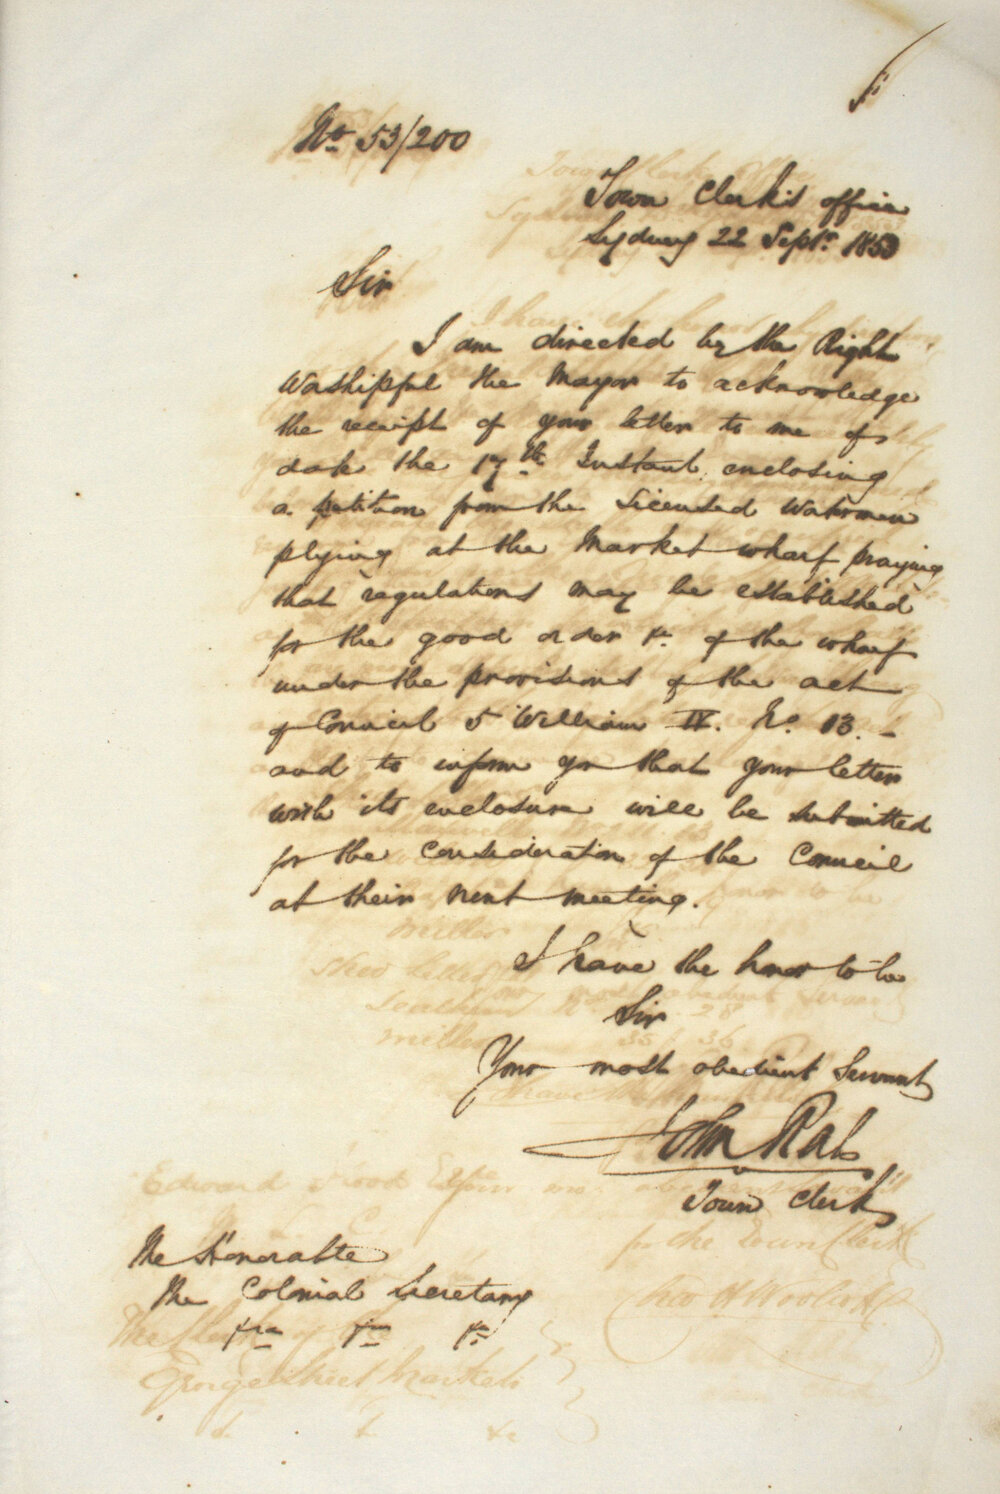 No. 53/200
Town Clerk's office
Sydney 22 Septr. 1853
Sir
I am directed by the Right
Worshipful the Mayor to acknowledge
the receipt of your letter to me of
date the 17th Instant enclosing
a petition from the Licensed Watermen
plying at the Market wharf praying
that regulations may be established
for the good order &c. of the wharf
under the provisions of the act
of Council 5 William IV. No. 13. -
and to inform you that your letter
with its enclosure will be submitted
for the consideration of the Council
at their next meeting.
I have the honor to be
Sir
Your most obedient Servant
John Rae
Town Clerk
The Honorable
The Colonial Secretary
&c &c &c